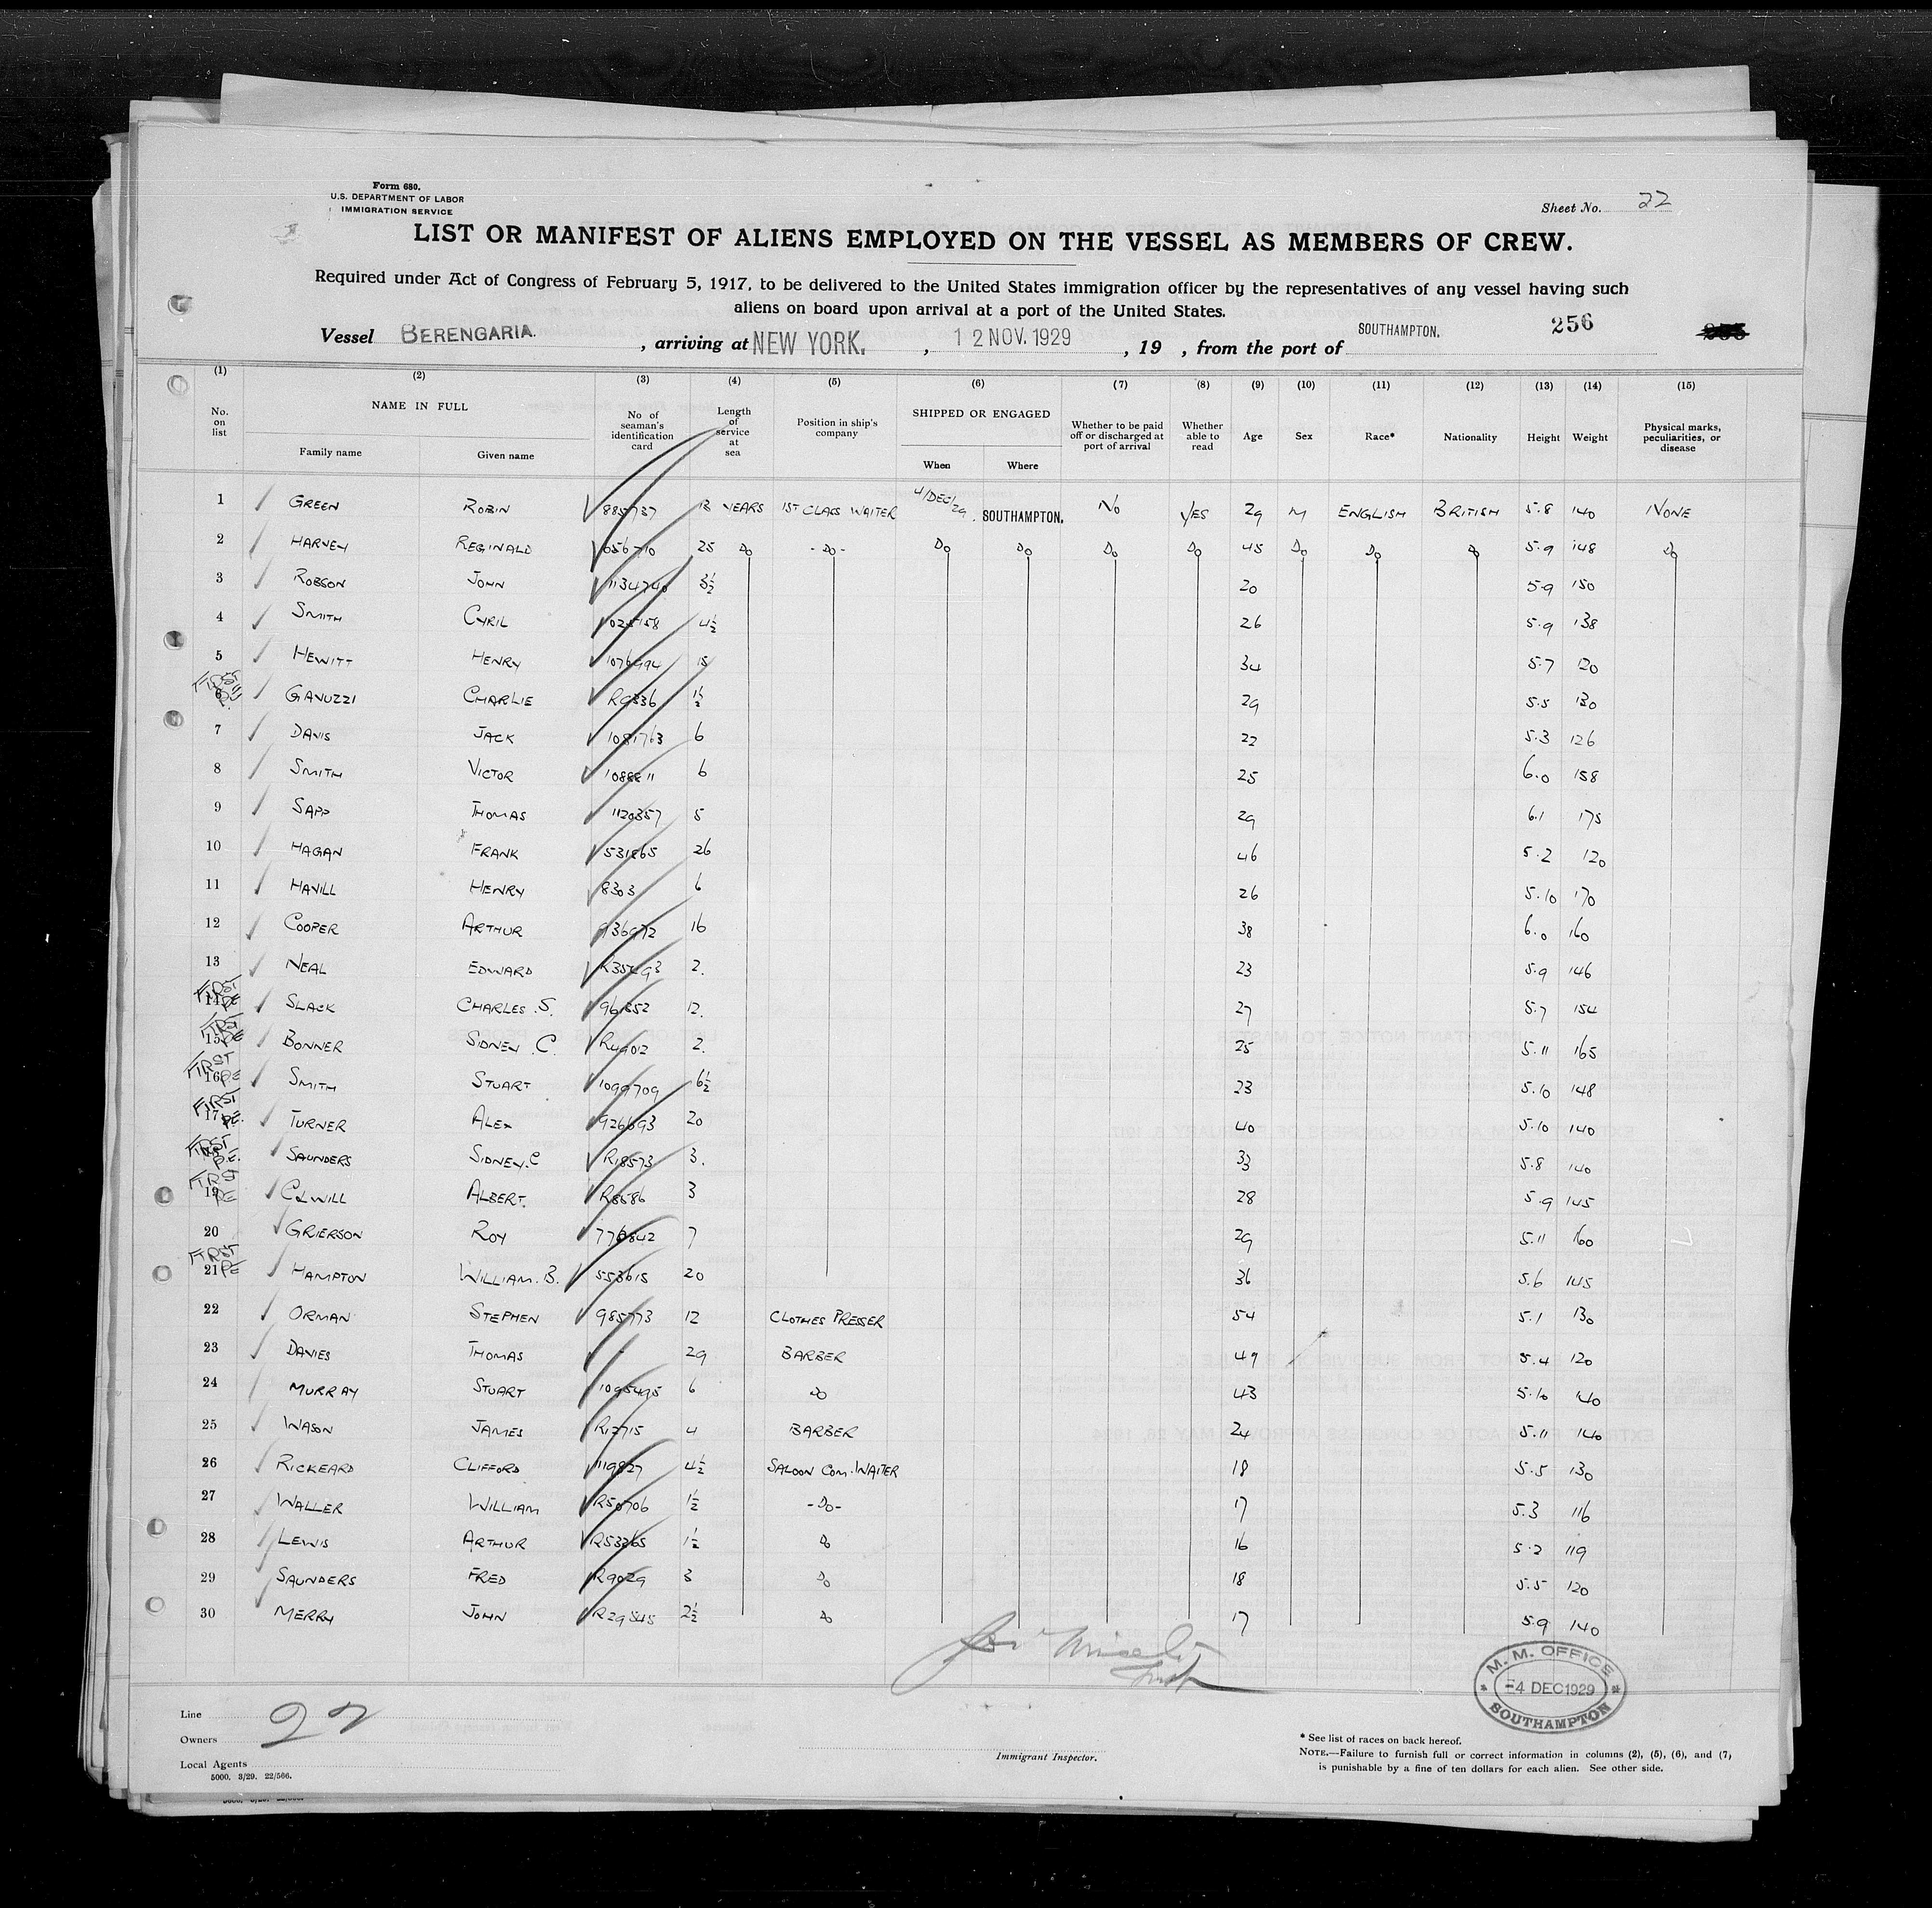 Form 680.
U.S. DEPARTMENT OF LABOR
IMMIGRATION SERVICE
Sheet No. 22
LIST OR MANIFEST OF ALIENS EMPLOYED ON THE VESSEL AS MEMBERS OF CREW.
Required under Act of Congress of February 5, 1917, to be delivered to the United States immigration officer by the representatives of any vessel having such
aliens on board upon arrival at a port of the United States.
Vessel BERENGARIA. , arriving at NEW YORK. , 12 NOV. 1929 , 19 , from the port of SOUTHAMPTON. 256
(1) (2) (3) (4) (5) (6) (7) (8) (9) (10) (11) (12) (13) (14) (15)
No. on list NAME IN FULL Family name Given name No of seaman's identification card Length of service at sea Position in ship's company SHIPPED OR ENGAGED When Where Whether to be paid off or discharged at port of arrival Whether able to read Age Sex Race* Nationality Height Weight Physical marks, peculiarities, or disease
1 GREEN ROBIN 885737 13 YEARS 1ST CLASS WAITER 4/DEC/29. SOUTHAMPTON. NO YES 29 M ENGLISH BRITISH 5.8 140 NONE
2 HARVEY REGINALD 656710 25 DO -DO- DO DO DO DO 45 DO DO DO 5.9 148 DO
3 ROBSON JOHN 1134740 3½ 20 5.9 150
4 SMITH CYRIL 4½ 26 5.9 138
5 HEWITT HENRY 15 34 5.7 120
FIRST P.E.
6 GAVUZZI CHARLIE R9336 1½ 29 5.5 130
7 DAVIS JACK 1081763 6 22 5.3 126
8 SMITH VICTOR 6 25 6.0 158
9 SAPP THOMAS 1120357 5 29 6.1 175
10 HAGAN FRANK 531865 26 46 5.2 120
11 HAVILL HENRY 8303 6 26 5.10 170
12 COOPER ARTHUR 936972 16 38 6.0 160
13 NEAL EDWARD 2. 23 5.9 146
FIRST PE
14 SLACK CHARLES.S. 12. 27 5.7 154
FIRST PE
15 BONNER SIDNEY.C. R49012 2. 25 5.11 165
FIRST PE
16 SMITH STUART 1099709 6½ 23 5.10 148
FIRST PE.
17 TURNER ALEX 926693 20 40 5.10 140
FIRST P.E.
18 SAUNDERS SIDNEY.C R18573 3. 33 5.8 140
FIRST PE
19 COLWILL ALBERT. R8586 3 28 5.9 145
20 GRIERSON ROY 776842 7 29 5.11 160
FIRST PE
21 HAMPTON WILLIAM.B. 553615 20 36 5.6 145
22 ORMAN STEPHEN 985773 12 CLOTHES PRESSER 54 5.1 130
23 DAVIES THOMAS - 29 BARBER 49 5.4 120
24 MURRAY STUART 1095495 6 DO 43 5.10 140
25 WASON JAMES R12715 4 BARBER 24 5.11 140
26 RICKEARD CLIFFORD 119827 4½ SALOON COM. WAITER 18 5.5 130
27 WALLER WILLIAM R50706 1½ -DO- 17 5.3 116
28 LEWIS ARTHUR R53365 1½ DO 16 5.2 119
29 SAUNDERS FRED R9029 3 DO 18 5.5 120
30 MERRY JOHN R29545 2½ DO 17 5.9 140
M. M. OFFICE
-4 DEC 1929
SOUTHAMPTON
Line
22
Owners
Local Agents
5000. 3/29. 22/566.
Immigrant Inspector.
* See list of races on back hereof.
NOTE.—Failure to furnish full or correct information in columns (2), (5), (6), and (7)
is punishable by a fine of ten dollars for each alien. See other side.